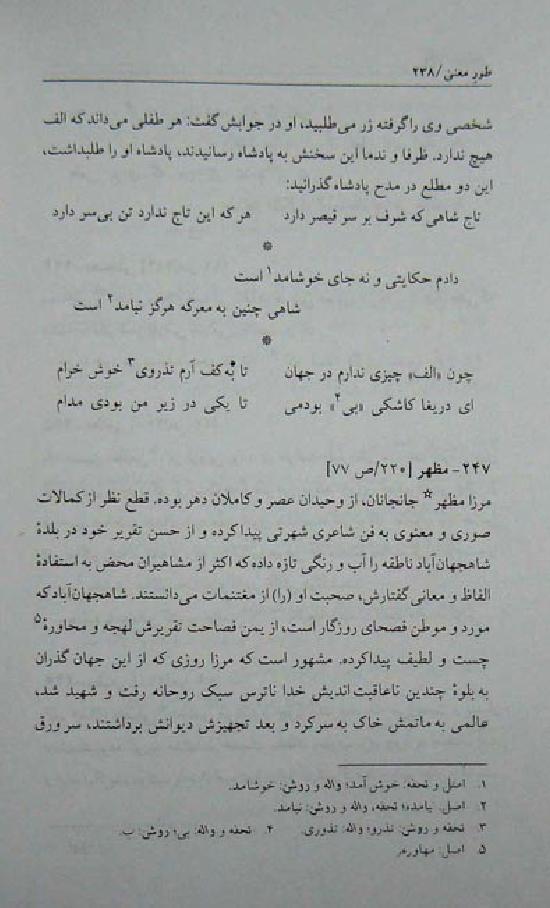 طور معنی / ۲۳۸
شخصی وی را گرفته زر می‌طلبید، او در جوابش گفت: هر طفلی می‌داند که الف
هیچ ندارد. ظرفا و ندما این سخنش به پادشاه رسانیدند، پادشاه او را طلبداشت،
این دو مطلع در مدح پادشاه گذرانید:
تاج شاهی که شرف بر سر قیصر دارد    هر که این تاج ندارد تن بی‌سر دارد
*
دادم حکایتی و نه جای خوشامد۱ است
شاهی چنین به معرکه هرگز نیامد۲ است
*
چون «الف» چیزی ندارم در جهان    تا به کف آرم تذروی۳ خوش خرام
ای دریغا کاشکی «بی۴» بودمی    تا یکی در زیر من بودی مدام
۲۴۷- مظهر [۲۲۰/ص ۷۷]
مرزا مظهر☆ جانجانان، از وحیدان عصر و کاملان دهر بوده. قطع نظر از کمالات
صوری و معنوی به فن شاعری شهرتی پیدا کرده و از حسن تقریر خود در بلدۀ
شاهجهان‌آباد ناطقه را آب و رنگی تازه داده که اکثر از مشاهیران محض به استفادۀ
الفاظ و معانی گفتارش، صحبت او (را) از مغتنمات می‌دانستند. شاهجهان‌آباد که
مورد و موطن فصحای روزگار است، از یمن فصاحت تقریرش لهجه و محاورۀ۵
چست و لطیف پیدا کرده. مشهور است که مرزا روزی که از این جهان گذران
به بلوۀ چندین ناعاقبت‌اندیش خدا ناترس سبک روحانه رفت و شهید شد،
عالمی به ماتمش خاک به سر کرد و بعد تجهیزش دیوانش برداشتند، سر ورق
۱. اصل و تحفه: خوش آمد؛ واله و روشن: خوشامد.
۲. اصل: بیامد،؛ تحفه، واله و روشن: نیامد.
۳. تحفه و روشن: تذرو؛ واله: تذوری.    ۴. تحفه و واله: بی؛ روشن: ب.
۵. اصل: مهاوره.